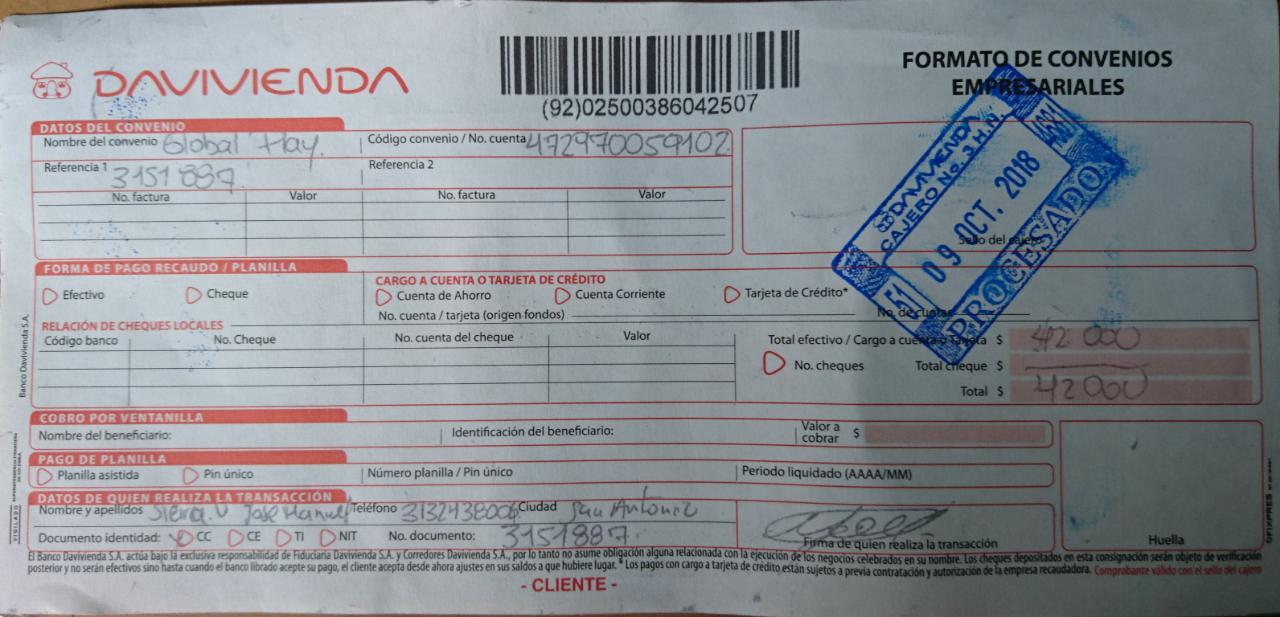 DAVIVIENDA
(92)02500386042507
FORMATO DE CONVENIOS
EMPRESARIALES
DATOS DEL CONVENIO
Nombre del convenio Global Play. Código convenio / No. cuenta 472970059102
Referencia 1 3151887 Referencia 2
No. factura Valor No. factura Valor
DAVIVIENDA
CAJERO No. 3 H.N.
09 OCT. 2018
51
PROCESADO
Sello del cajero
FORMA DE PAGO RECAUDO / PLANILLA
Efectivo Cheque
CARGO A CUENTA O TARJETA DE CRÉDITO
Cuenta de Ahorro Cuenta Corriente Tarjeta de Crédito*
No. cuenta / tarjeta (origen fondos) No. de cuotas
RELACIÓN DE CHEQUES LOCALES
Código banco No. Cheque No. cuenta del cheque Valor
Total efectivo / Cargo a cuenta o Tarjeta $ 42 000
No. cheques Total cheque $
Total $ 42000
COBRO POR VENTANILLA
Nombre del beneficiario: Identificación del beneficiario: Valor a cobrar $
PAGO DE PLANILLA
Planilla asistida Pin único Número planilla / Pin único Periodo liquidado (AAAA/MM)
DATOS DE QUIEN REALIZA LA TRANSACCIÓN
Nombre y apellidos Sierra. V José Manuel Teléfono 3132438006 Ciudad San Antonio
Documento identidad: CC CE TI NIT No. documento: 3151887
Firma de quien realiza la transacción
Huella
El Banco Davivienda S.A. actúa bajo la exclusiva responsabilidad de Fiduciaria Davivienda S.A. y Corredores Davivienda S.A., por lo tanto no asume obligación alguna relacionada con la ejecución de los negocios celebrados en su nombre. Los cheques depositados en esta consignación serán objeto de verificación
posterior y no serán efectivos sino hasta cuando el banco librado acepte su pago, el cliente acepta desde ahora ajustes en sus saldos a que hubiere lugar. * Los pagos con cargo a tarjeta de crédito están sujetos a previa contratación y autorización de la empresa recaudadora. Comprobante válido con el sello del cajero
- CLIENTE -
Banco Davivienda S.A.
VIGILADO